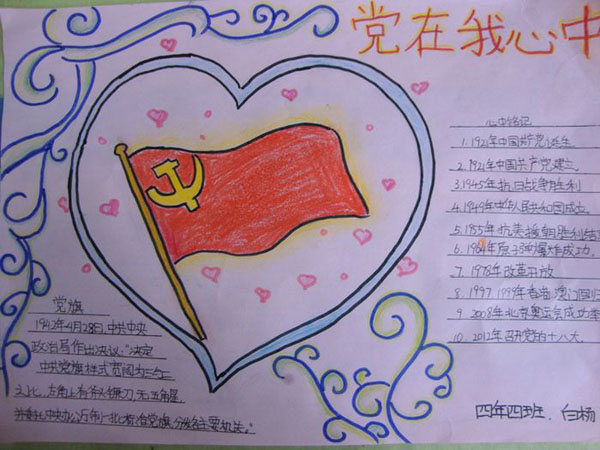 党在我心中
心中铭记
1.1921年中国共产党诞生
2.1921年中国共产党建立.
3.1945年抗日战争胜利
4.1949年中华人民共和国成立.
5.1955年抗美援朝胜利结
6.1964年原子弹爆炸成功.
7.1978年改革开放
8.1997 1999年香港澳门回归
9.2008年北京奥运会成功举
10.2012年召开党的十八大.
党旗
1942年4月28日,中共中央
政治局作出决议:"决定
中共党旗样式宽阔为三与二
之比,左角上有斧头镰刀,无五角星
中央办 标准党旗,分 各主要机关."
四年四班. 白杨